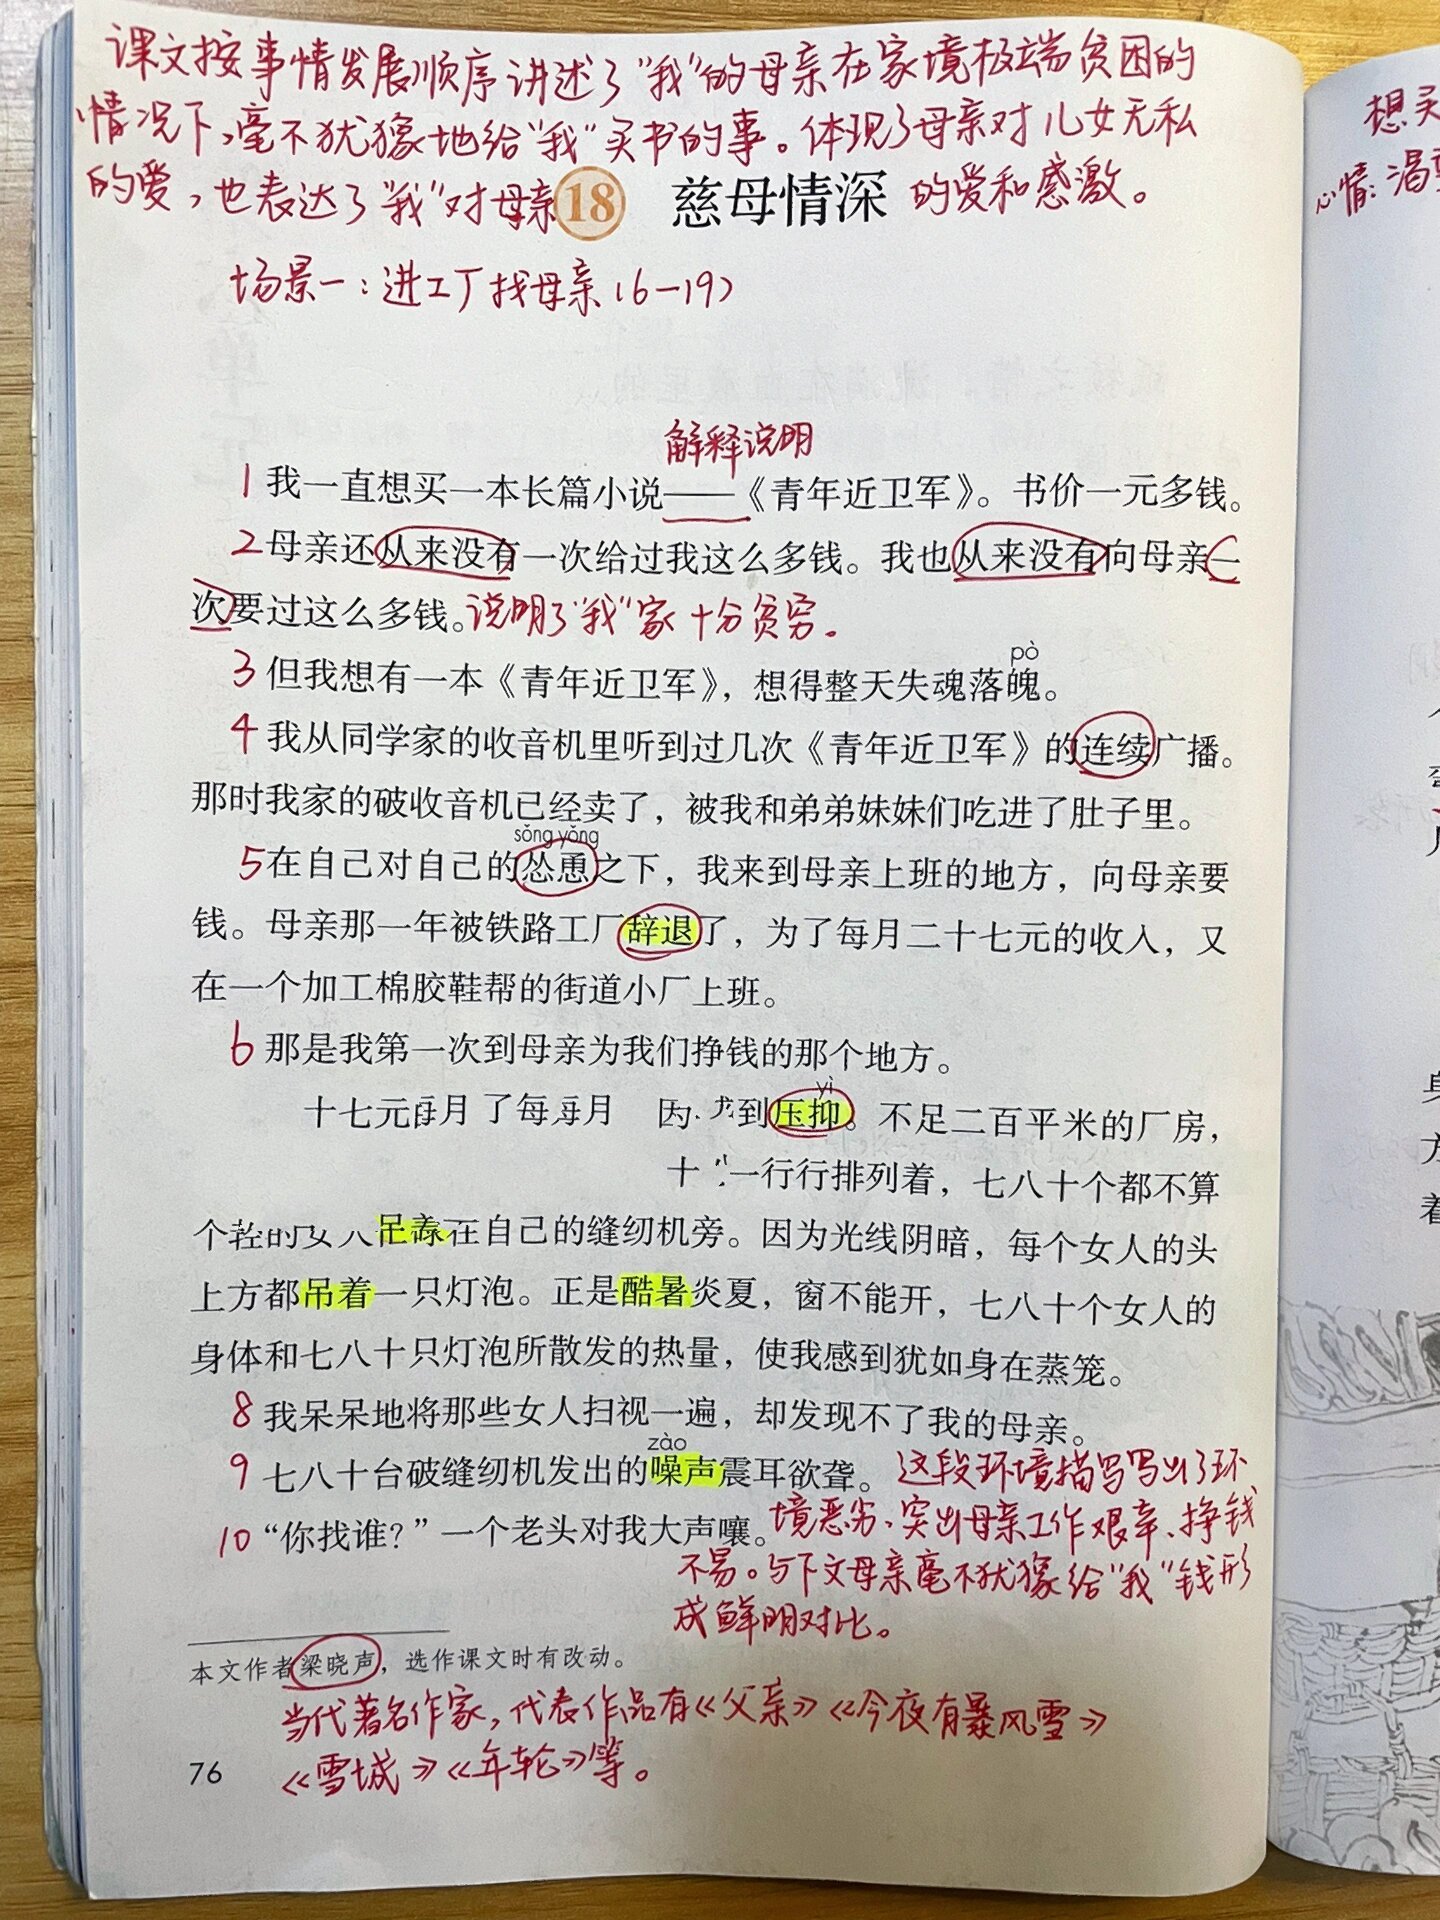 课文按事情发展顺序讲述了“我”的母亲在家境极端贫困的
情况下,毫不犹豫地给“我”买书的事。体现了母亲对儿女无私
的爱,也表达了“我”对母亲 18 慈母情深 的爱和感激。
场景一:进工厂找母亲(6—19)
解释说明
1 我一直想买一本长篇小说——《青年近卫军》。书价一元多钱。
2 母亲还从来没有一次给过我这么多钱。我也从来没有向母亲一
次要过这么多钱。说明了“我”家十分贫穷。
pò
3 但我想有一本《青年近卫军》,想得整天失魂落魄。
4 我从同学家的收音机里听到过几次《青年近卫军》的连续广播。
那时我家的破收音机已经卖了,被我和弟弟妹妹们吃进了肚子里。
sǒng yǒng
5 在自己对自己的怂恿之下,我来到母亲上班的地方,向母亲要
钱。母亲那一年被铁路工厂辞退了,为了每月二十七元的收入,又
在一个加工棉胶鞋帮的街道小厂上班。
6 那是我第一次到母亲为我们挣钱的那个地方。
yì
十七元每月 了每每月 因 到压抑。不足二百平米的厂房,
十 一行行排列着,七八十个都不算
个 在自己的缝纫机旁。因为光线阴暗,每个女人的头
上方都吊着一只灯泡。正是酷暑炎夏,窗不能开,七八十个女人的
身体和七八十只灯泡所散发的热量,使我感到犹如身在蒸笼。
8 我呆呆地将那些女人扫视一遍,却发现不了我的母亲。
zào
9 七八十台破缝纫机发出的噪声震耳欲聋。这段环境描写写出了环
10 “你找谁?”一个老头对我大声嚷。境恶劣、突出母亲工作艰辛、挣钱
不易。与下文母亲毫不犹豫给“我”钱形
成鲜明对比。
本文作者梁晓声,选作课文时有改动。
当代著名作家,代表作品有《父亲》《今夜有暴风雪》
《雪城》《年轮》等。
76
想
心情:渴
身
方
着